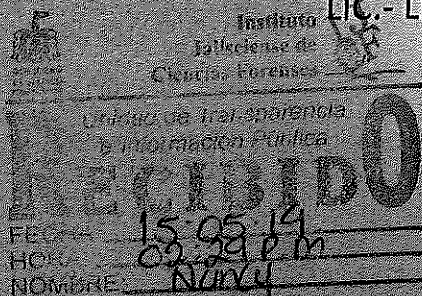 LIC.- L
Instituto
Jalisciense de
Ciencias Forenses
Unidad de Transparencia
e Información Pública
RECIBIDO
FECHA 15-05-19
HORA 02:29 pm
NOMBRE Nancy